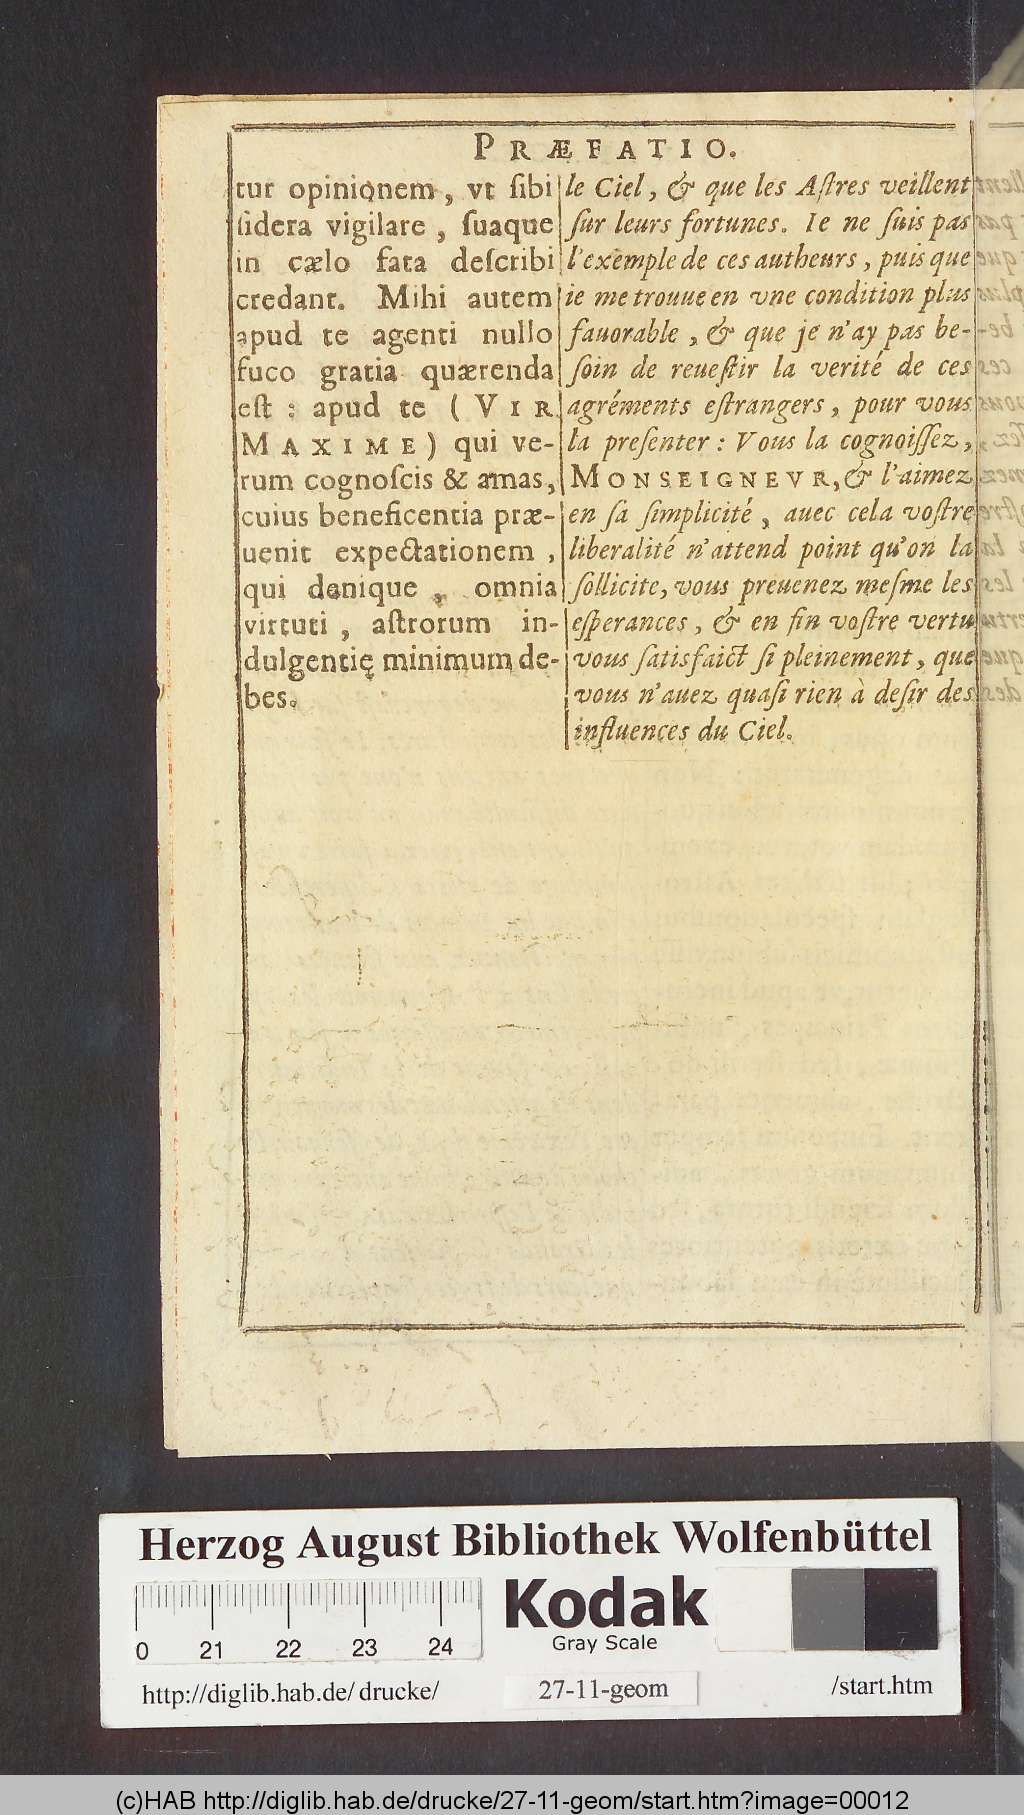 PRÆFATIO.
tur opinionem, vt ſibi
ſidera vigilare, ſuaque
in cælo fata deſcribi
credant. Mihi autem
apud te agenti nullo
fuco gratia quærenda
eſt : apud te (VIR
MAXIME) qui ve-
rum cognoſcis & amas,
cuius beneficentia præ-
uenit expectationem,
qui denique, omnia
virtuti, aſtrorum in-
dulgentię minimum de-
bes.
le Ciel, & que les Aſtres veillent
ſur leurs fortunes. Ie ne ſuis pas
l'exemple de ces autheurs, puis que
ie me trouue en vne condition plus
fauorable, & que je n'ay pas be-
ſoin de reueſtir la verité de ces
agréments eſtrangers, pour vous
la preſenter : Vous la cognoiſſez,
MONSEIGNEVR, & l'aimez
en ſa ſimplicité, auec cela voſtre
liberalité n'attend point qu'on la
ſollicite, vous preuenez meſme les
eſperances, & en fin voſtre vertu
vous ſatisfaict ſi pleinement, que
vous n'auez quaſi rien à deſir des
influences du Ciel.
Herzog August Bibliothek Wolfenbüttel
Kodak
Gray Scale
0 21 22 23 24
http://diglib.hab.de/drucke/ 27-11-geom /start.htm
(c)HAB http://diglib.hab.de/drucke/27-11-geom/start.htm?image=00012